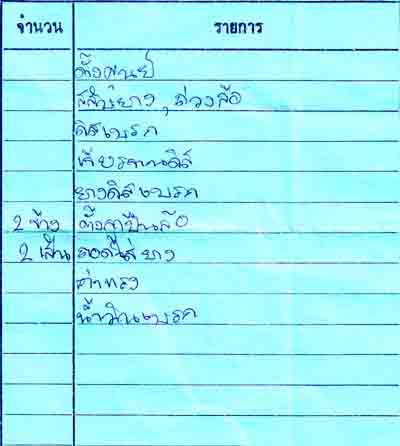 จำนวน รายการ
ตั้งศูนย์
สลับยาง, ถ่วงล้อ
ดิสเบรก
เจียรจานดิส
ยางดิสเบรก
2 ข้าง ตั้งลูกปืนล้อ
2 เส้น ถอดใส่ยาง
ค่าแรง
น้ำมันเบรก